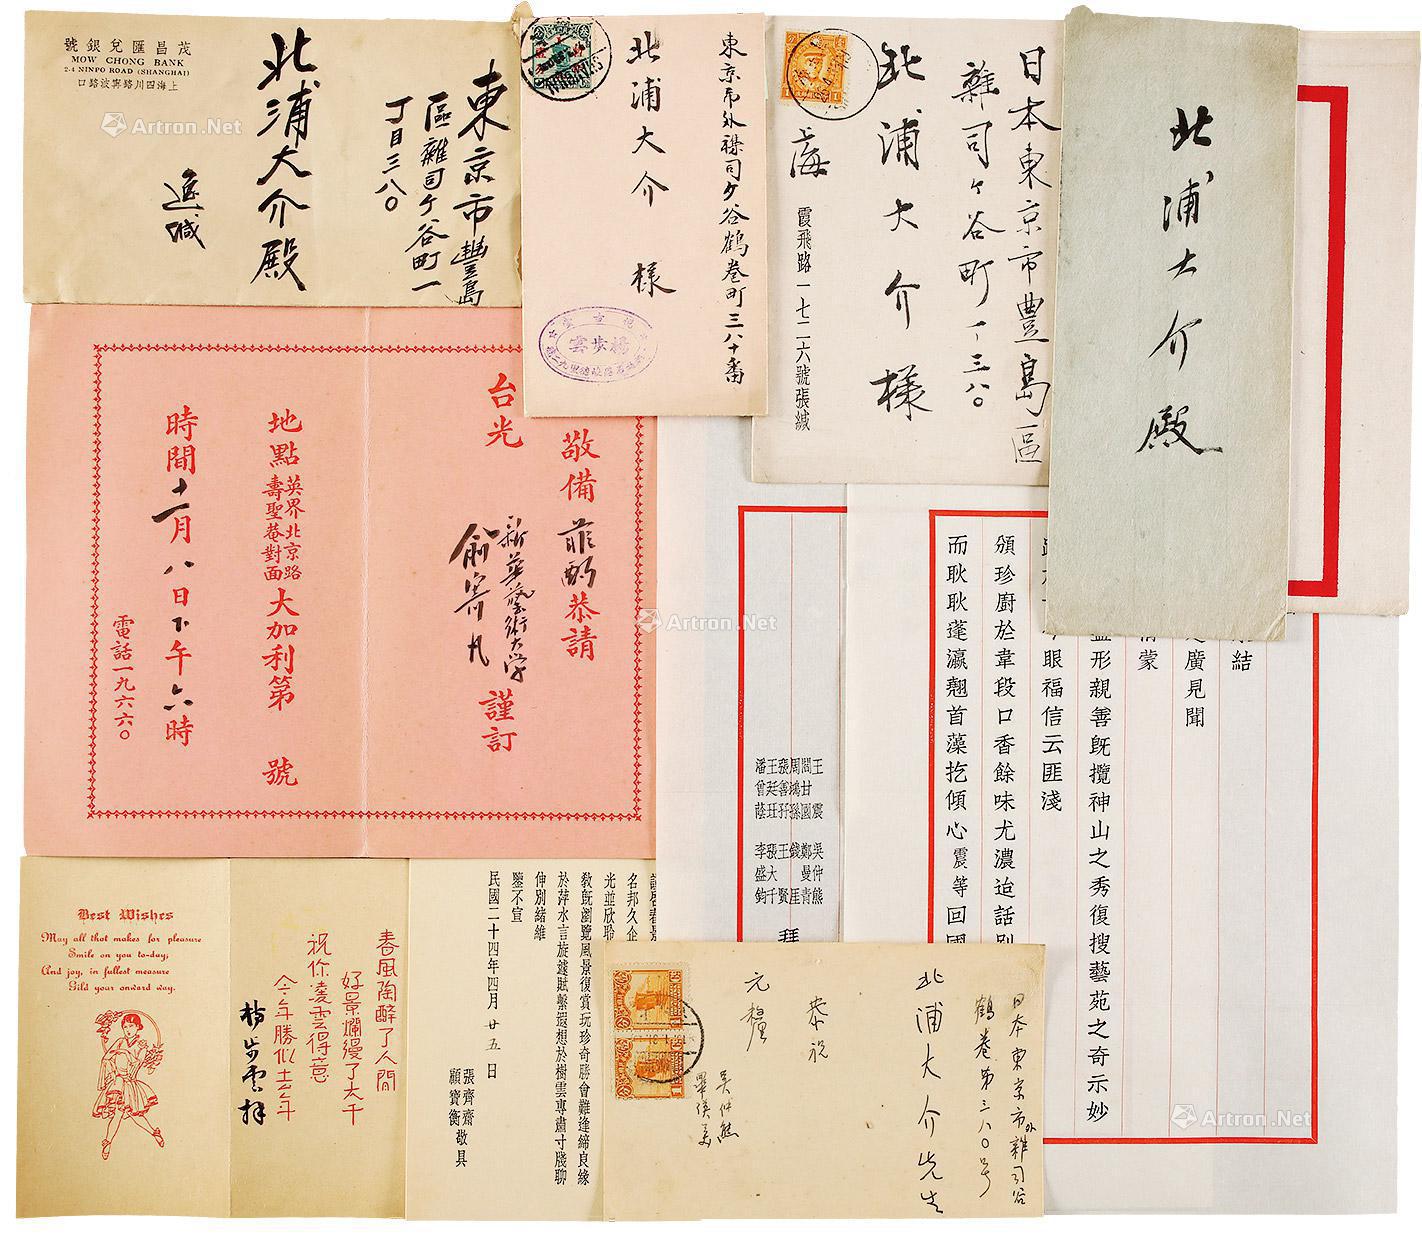 茂昌匯兌銀號
MOW CHONG BANK
2-4 NINPO ROAD (SHANGHAI)
上海四川路寧波路口
東京市豐島
區雜司ケ谷町一
丁目三八〇
北浦大介殿
東京市外雜司ケ谷鶴巻町三八十番
北浦大介 様
楊步雲
日本東京市豊島區
雜司ヶ谷町一ノ三八〇
北浦大介様
上海
霞飛路一七二六號張緘
北浦大介殿
敬備 菲酌 恭請
台光
新華藝術大学
俞寄凡 謹訂
地點 英界北京路
壽聖菴對面 大加利第 號
時間 十一月八日下午六時
電話一九六六〇
結
廣見聞
蒙
形親善既攬神山之秀復搜藝苑之奇示妙
眼福信云匪淺
頒珍廚於韋段口香餘味尤濃迨話別
而耿耿蓬瀛翹首藻扢傾心震等回國
王震 吳仲熊
閻甘國 鄭曼青
周鴻孫 錢厓
張善孖 王賢
王廷珏 張大千
潘曾蔭 李盛鈞
拜
Best Wishes
May all that makes for pleasure
Smile on you to-day;
And joy, in fullest measure
Gild your onward way.
春風陶醉了人間
好景爛縵了大千
祝你凌雲得意
今年勝似去年
楊步雲拜
名邦久企
光並欣聆
教既瀏覽風景復賞玩珍奇勝會難逢締良緣
於萍水言旋遽賦繫遐想於樹雲專肅寸牋聊
伸別緒維
鑒不宣
民國二十四年四月廿五日
張齊齋
顧寶衡 敬具
日本東京市外雜司谷
鶴巻第三八〇号
北浦大介先生
恭祝
元釐
吳仲熊
Artron.Net
Artron.Net
Artron.Net
Artron.Net